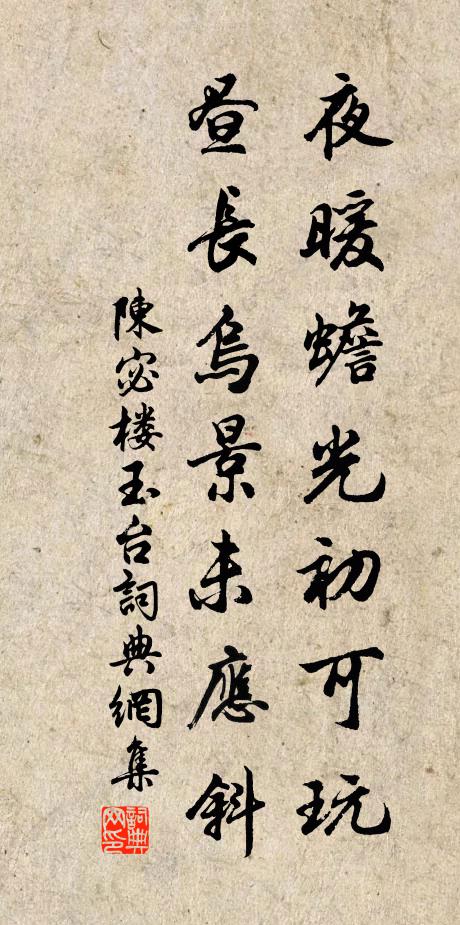 夜暖蟾光初可玩
昼長烏景未應斜
陳宓楼玉台詞典網集
詞典網印